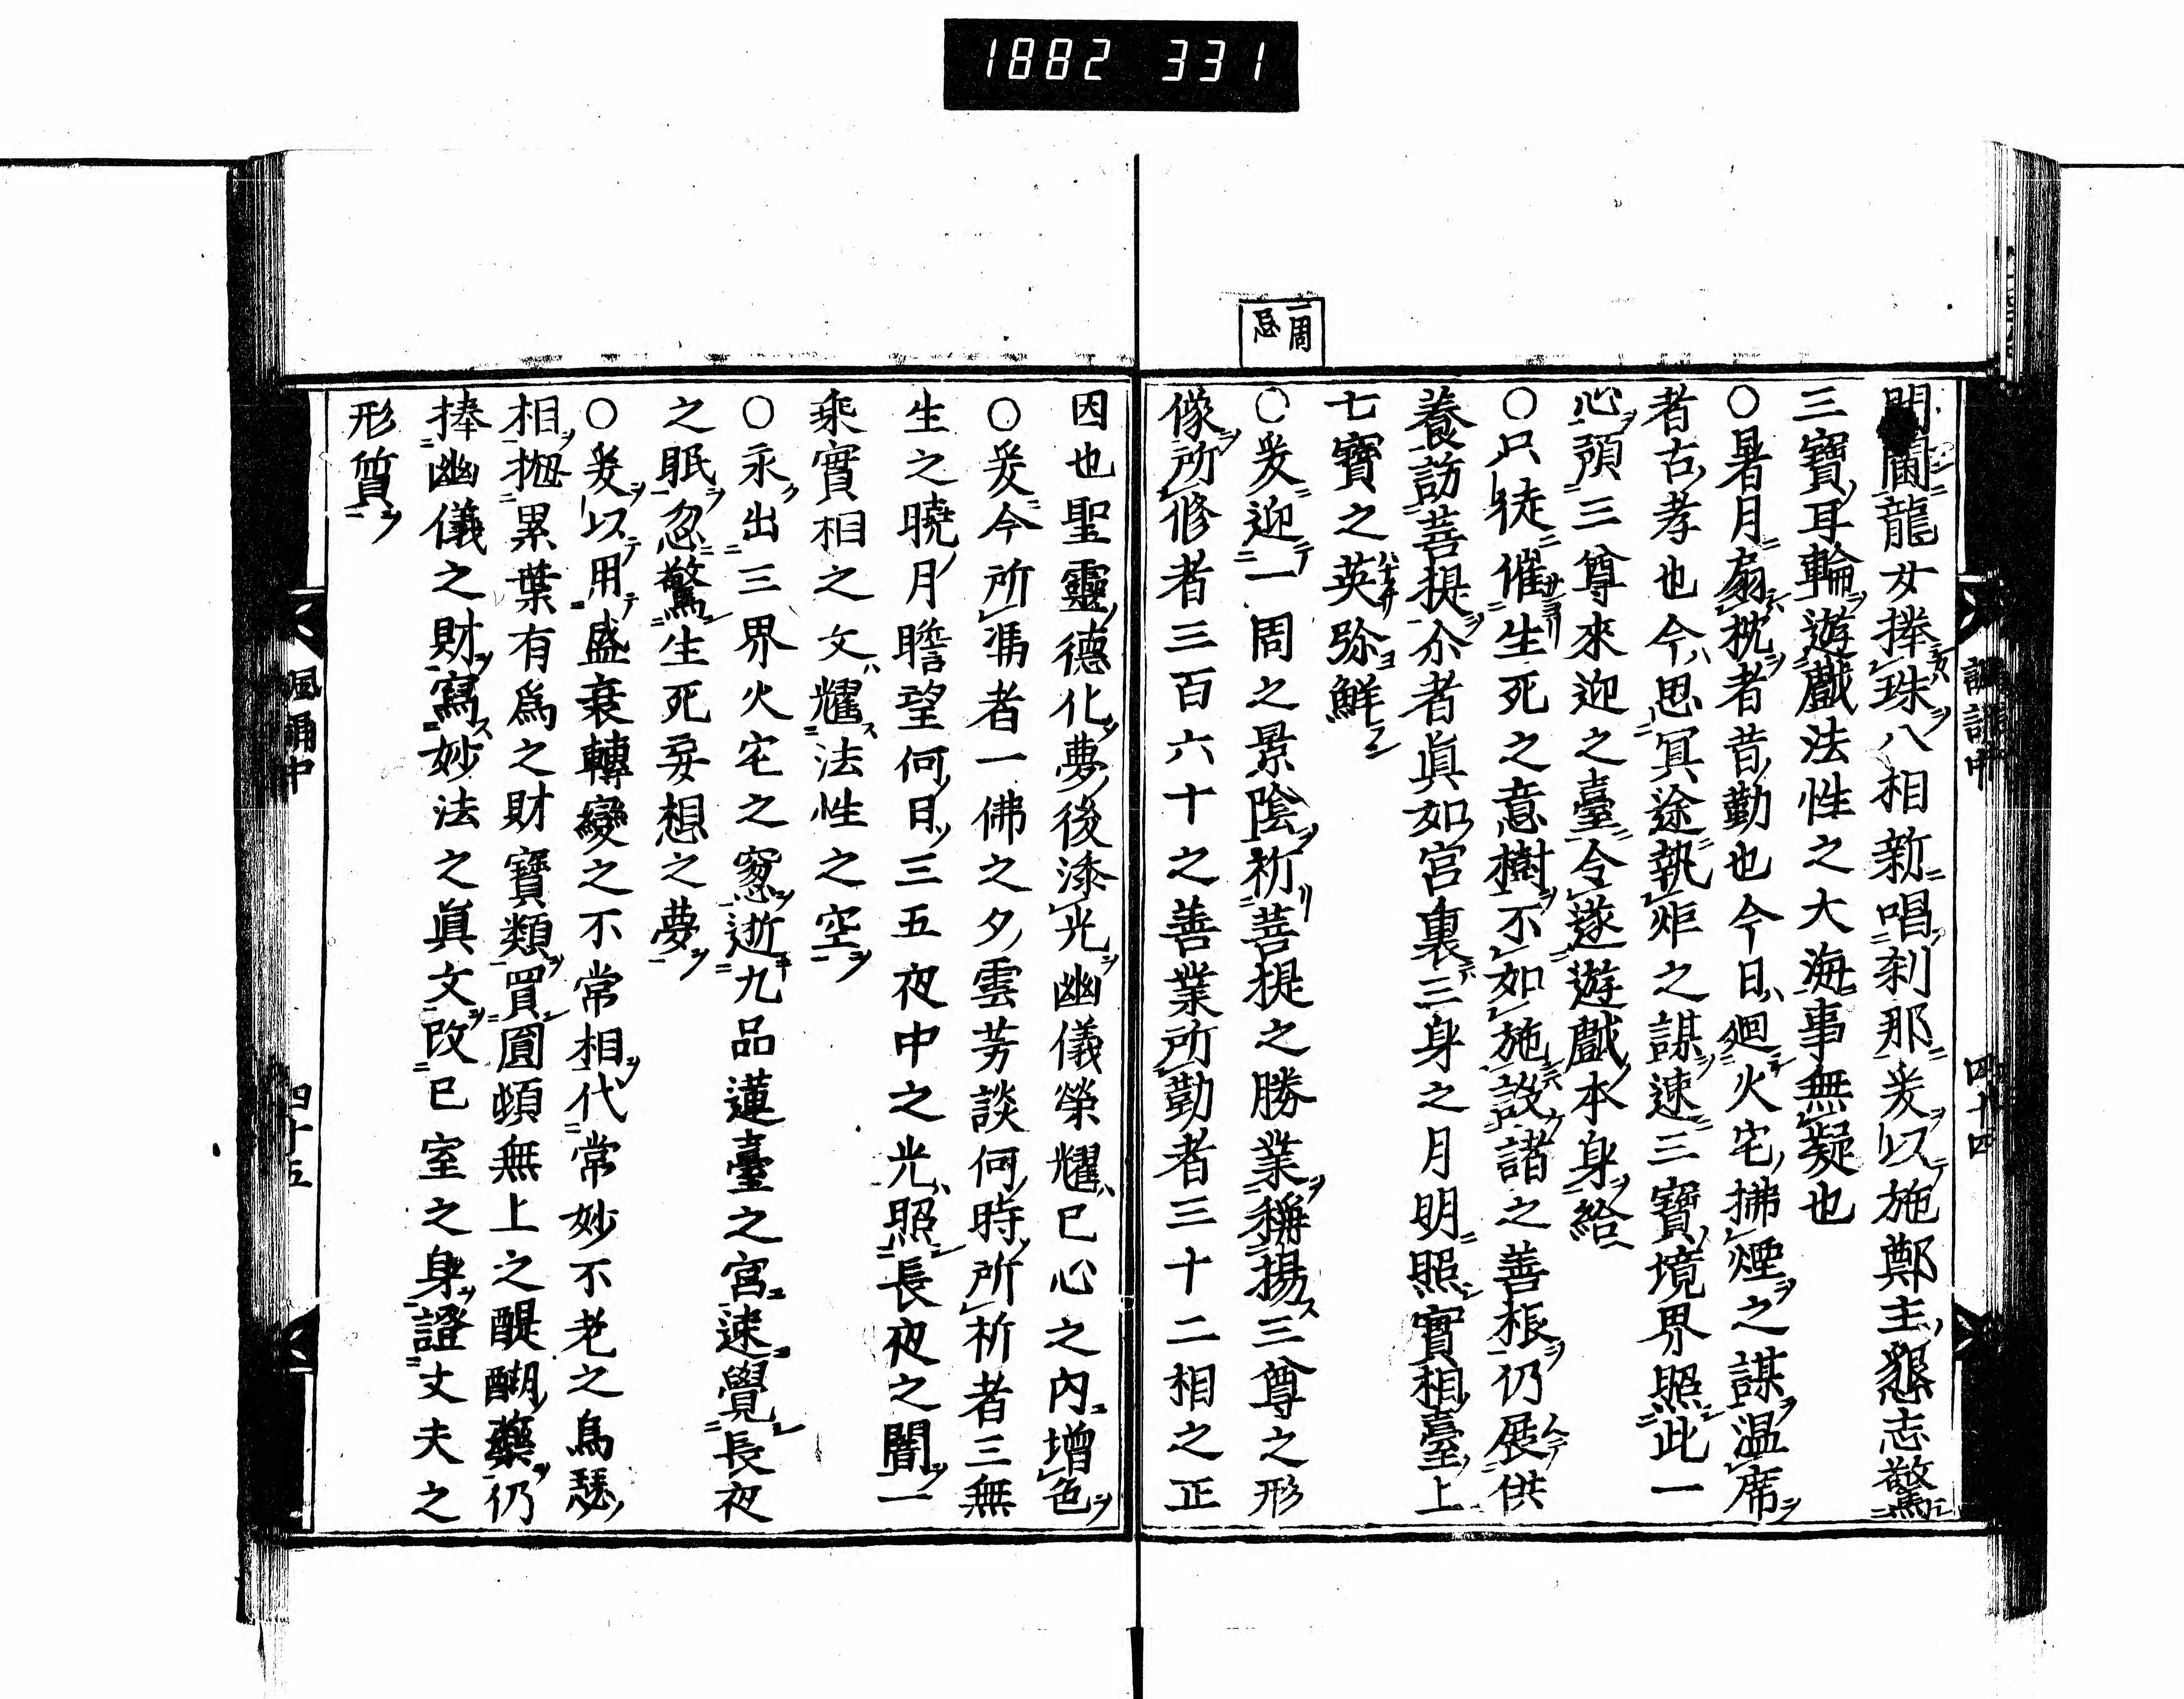 1882 331
閣龍女捧珠八相新唱刹那爰以施鄭主懇志驚
三寶耳輪遊戲法性之大海事無疑也
○暑月扇枕者昔勤也今日廻火宅拂煙之謀温席
者古孝也今思冥途執炬之謀速三寶境界照此一
心預三尊來迎之臺令遂遊戯本身給
○只徒催生死之意樹不如施設諸之善根仍展供
養訪菩提尒者眞如宮裏三身之月明照實相臺上
七寶之英弥鮮
一周忌
○爰迎一周之景陰祈菩提之勝業稱揚三尊之形
像所修者三百六十之善業所勤者三十二相之正
因也聖靈德化夢後添光幽儀榮耀已心之内增色
○爰今所馮者一佛之夕雲芳談何時所祈者三無
生之曉月瞻望何日三五夜中之光照長夜之闇一
乘實相之文耀法性之空
○永出三界火宅之窓逝九品蓮臺之宮速覺長夜
之眠忽驚生死妄想之夢
○爰以用盛衰轉變之不常相代常妙不老之鳥瑟
相拋累葉有爲之財寶類買圓頓無上之醍醐藥仍
捧幽儀之財寫妙法之眞文改已室之身證丈夫之
形質
諷誦中
四十四
諷誦中
四十五